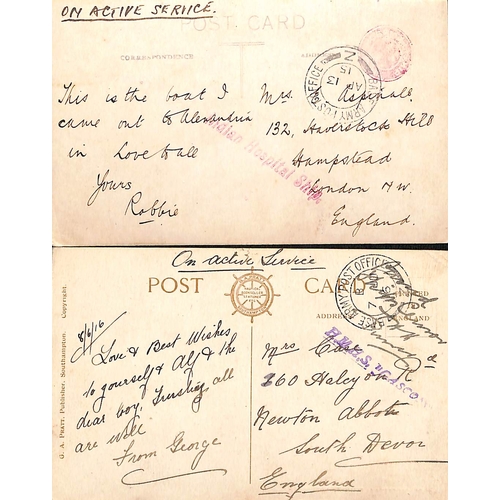 ON ACTIVE SERVICE.
POST CARD
CORRESPONDENCE
BASE ARMY POST OFFICE
Z
13
AP
15
This is the boat I
came out to Alexandria
in Love to all
Yours
Robbie
Mrs. Aspinall.
132, Haverstock Hill
Hampstead
London N.W.
England.
Indian Hospital Ship.
On active Service
POST CARD
G. A. Pratt, Publisher, Southampton. Copyright.
8/6/16
Love & Best Wishes
to yourself & Alf & the
dear boy, Trusting all
are well
From George
ARMY POST OFFICE
H.M.H.S.
Mrs
Rd
Newton Abbot
South Devon
England